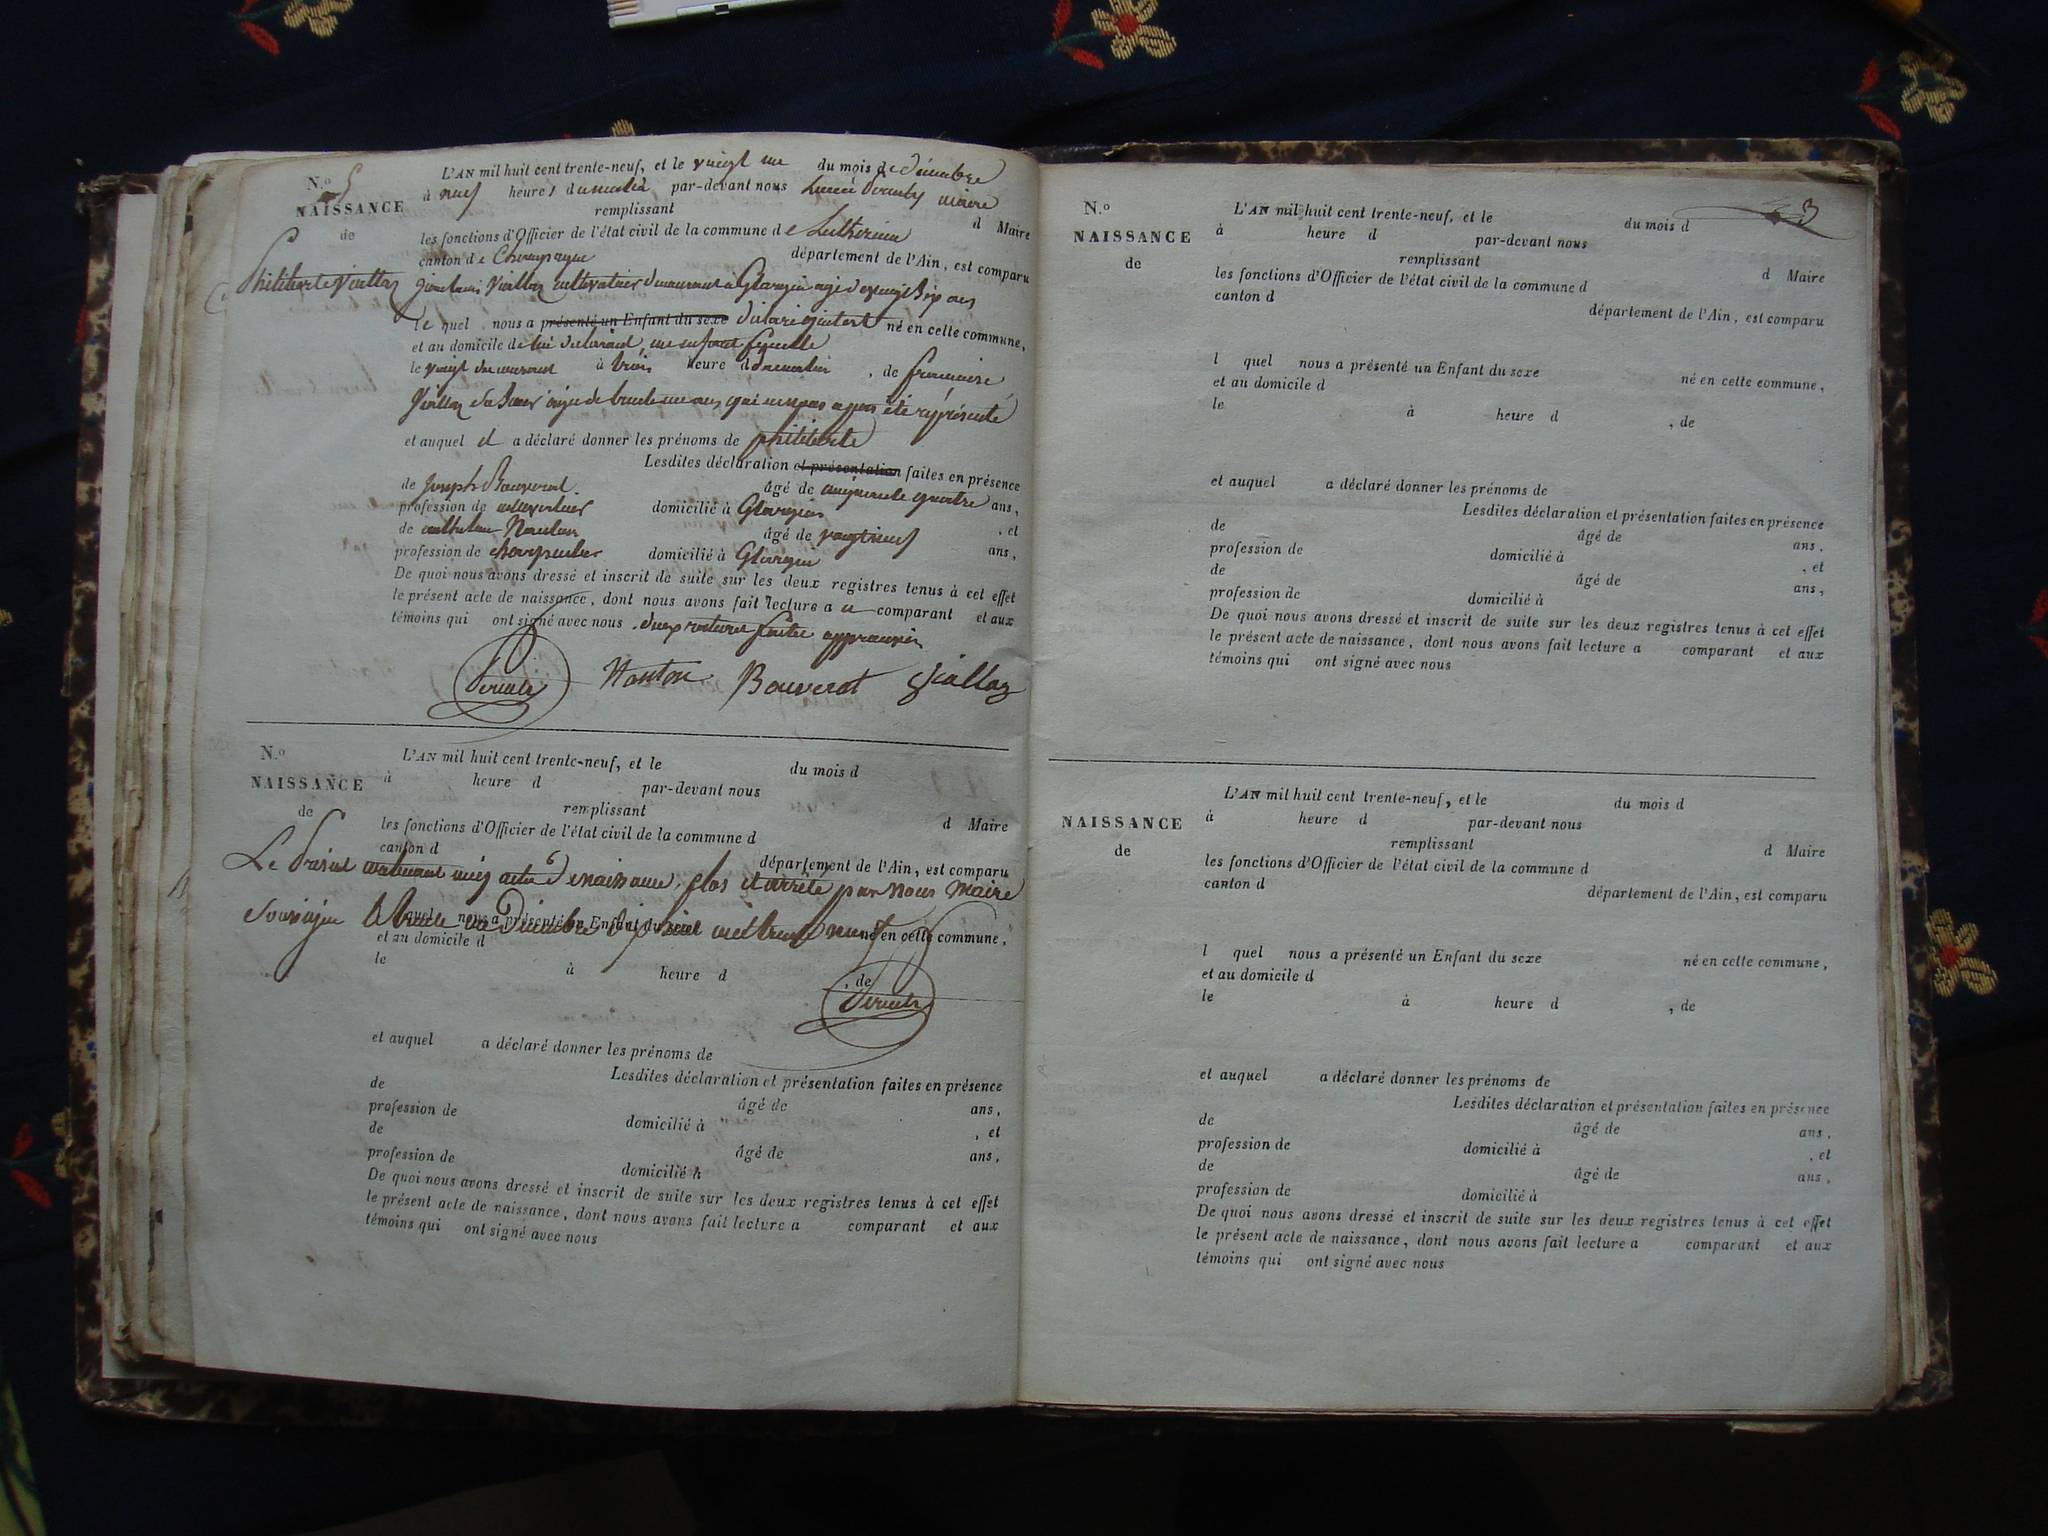 N.º 5
NAISSANCE
de
Philiberte Viallaz
L'AN mil huit cent trente-neuf, et le vingt un du mois de décembre
à neuf heures du matin par-devant nous maire
remplissant
les fonctions d'Officier de l'état civil de la commune de d Maire
canton de Champagne département de l'Ain, est comparu
Viallaz cultivateur demeurant à agé de ans
le quel nous a présenté un Enfant du sexe né en cette commune,
et au domicile de un enfant femelle
le vingt du courant à trois heure du matin , de françoise
Viallaz agée de trente ans qui pas été représenté
et auquel il a déclaré donner les prénoms de philiberte
Lesdites déclaration et présentation faites en présence
de Joseph Bouverat âgé de cinquante quatre ans,
profession de cultivateur domicilié à
de anthelme âgé de vingt neuf , et
profession de charpentier domicilié à ans,
De quoi nous avons dressé et inscrit de suite sur les deux registres tenus à cet effet
le présent acte de naissance, dont nous avons fait lecture a u comparant et aux
témoins qui ont signé avec nous
Bouverat Viallaz
N.º
NAISSANCE
de
L'AN mil huit cent trente-neuf, et le du mois d
à heure d par-devant nous
remplissant
les fonctions d'Officier de l'état civil de la commune d d Maire
canton d département de l'Ain, est comparu
Le Présent contenant cinq actes de naissance, clos et arrêté par nous maire
quel nous a présenté un Enfant du sexe né en cette commune,
soussigné le trente un Décembre mil huit cent trente neuf
et au domicile d
le à heure d , de
et auquel a déclaré donner les prénoms de
Lesdites déclaration et présentation faites en présence
de âgé de ans,
profession de domicilié à , et
de âgé de ans,
profession de domicilié à
De quoi nous avons dressé et inscrit de suite sur les deux registres tenus à cet effet
le présent acte de naissance, dont nous avons fait lecture a comparant et aux
témoins qui ont signé avec nous
3
N.º
NAISSANCE
de
L'AN mil huit cent trente-neuf, et le du mois d
à heure d par-devant nous
remplissant
les fonctions d'Officier de l'état civil de la commune d d Maire
canton d département de l'Ain, est comparu
l quel nous a présenté un Enfant du sexe né en cette commune,
et au domicile d
le à heure d , de
et auquel a déclaré donner les prénoms de
Lesdites déclaration et présentation faites en présence
de âgé de ans,
profession de domicilié à , et
de âgé de ans,
profession de domicilié à
De quoi nous avons dressé et inscrit de suite sur les deux registres tenus à cet effet
le présent acte de naissance, dont nous avons fait lecture a comparant et aux
témoins qui ont signé avec nous
NAISSANCE
de
L'AN mil huit cent trente-neuf, et le du mois d
à heure d par-devant nous
remplissant
les fonctions d'Officier de l'état civil de la commune d d Maire
canton d département de l'Ain, est comparu
l quel nous a présenté un Enfant du sexe né en cette commune,
et au domicile d
le à heure d , de
et auquel a déclaré donner les prénoms de
Lesdites déclaration et présentation faites en présence
de âgé de ans,
profession de domicilié à , et
de âgé de ans,
profession de domicilié à
De quoi nous avons dressé et inscrit de suite sur les deux registres tenus à cet effet
le présent acte de naissance, dont nous avons fait lecture a comparant et aux
témoins qui ont signé avec nous